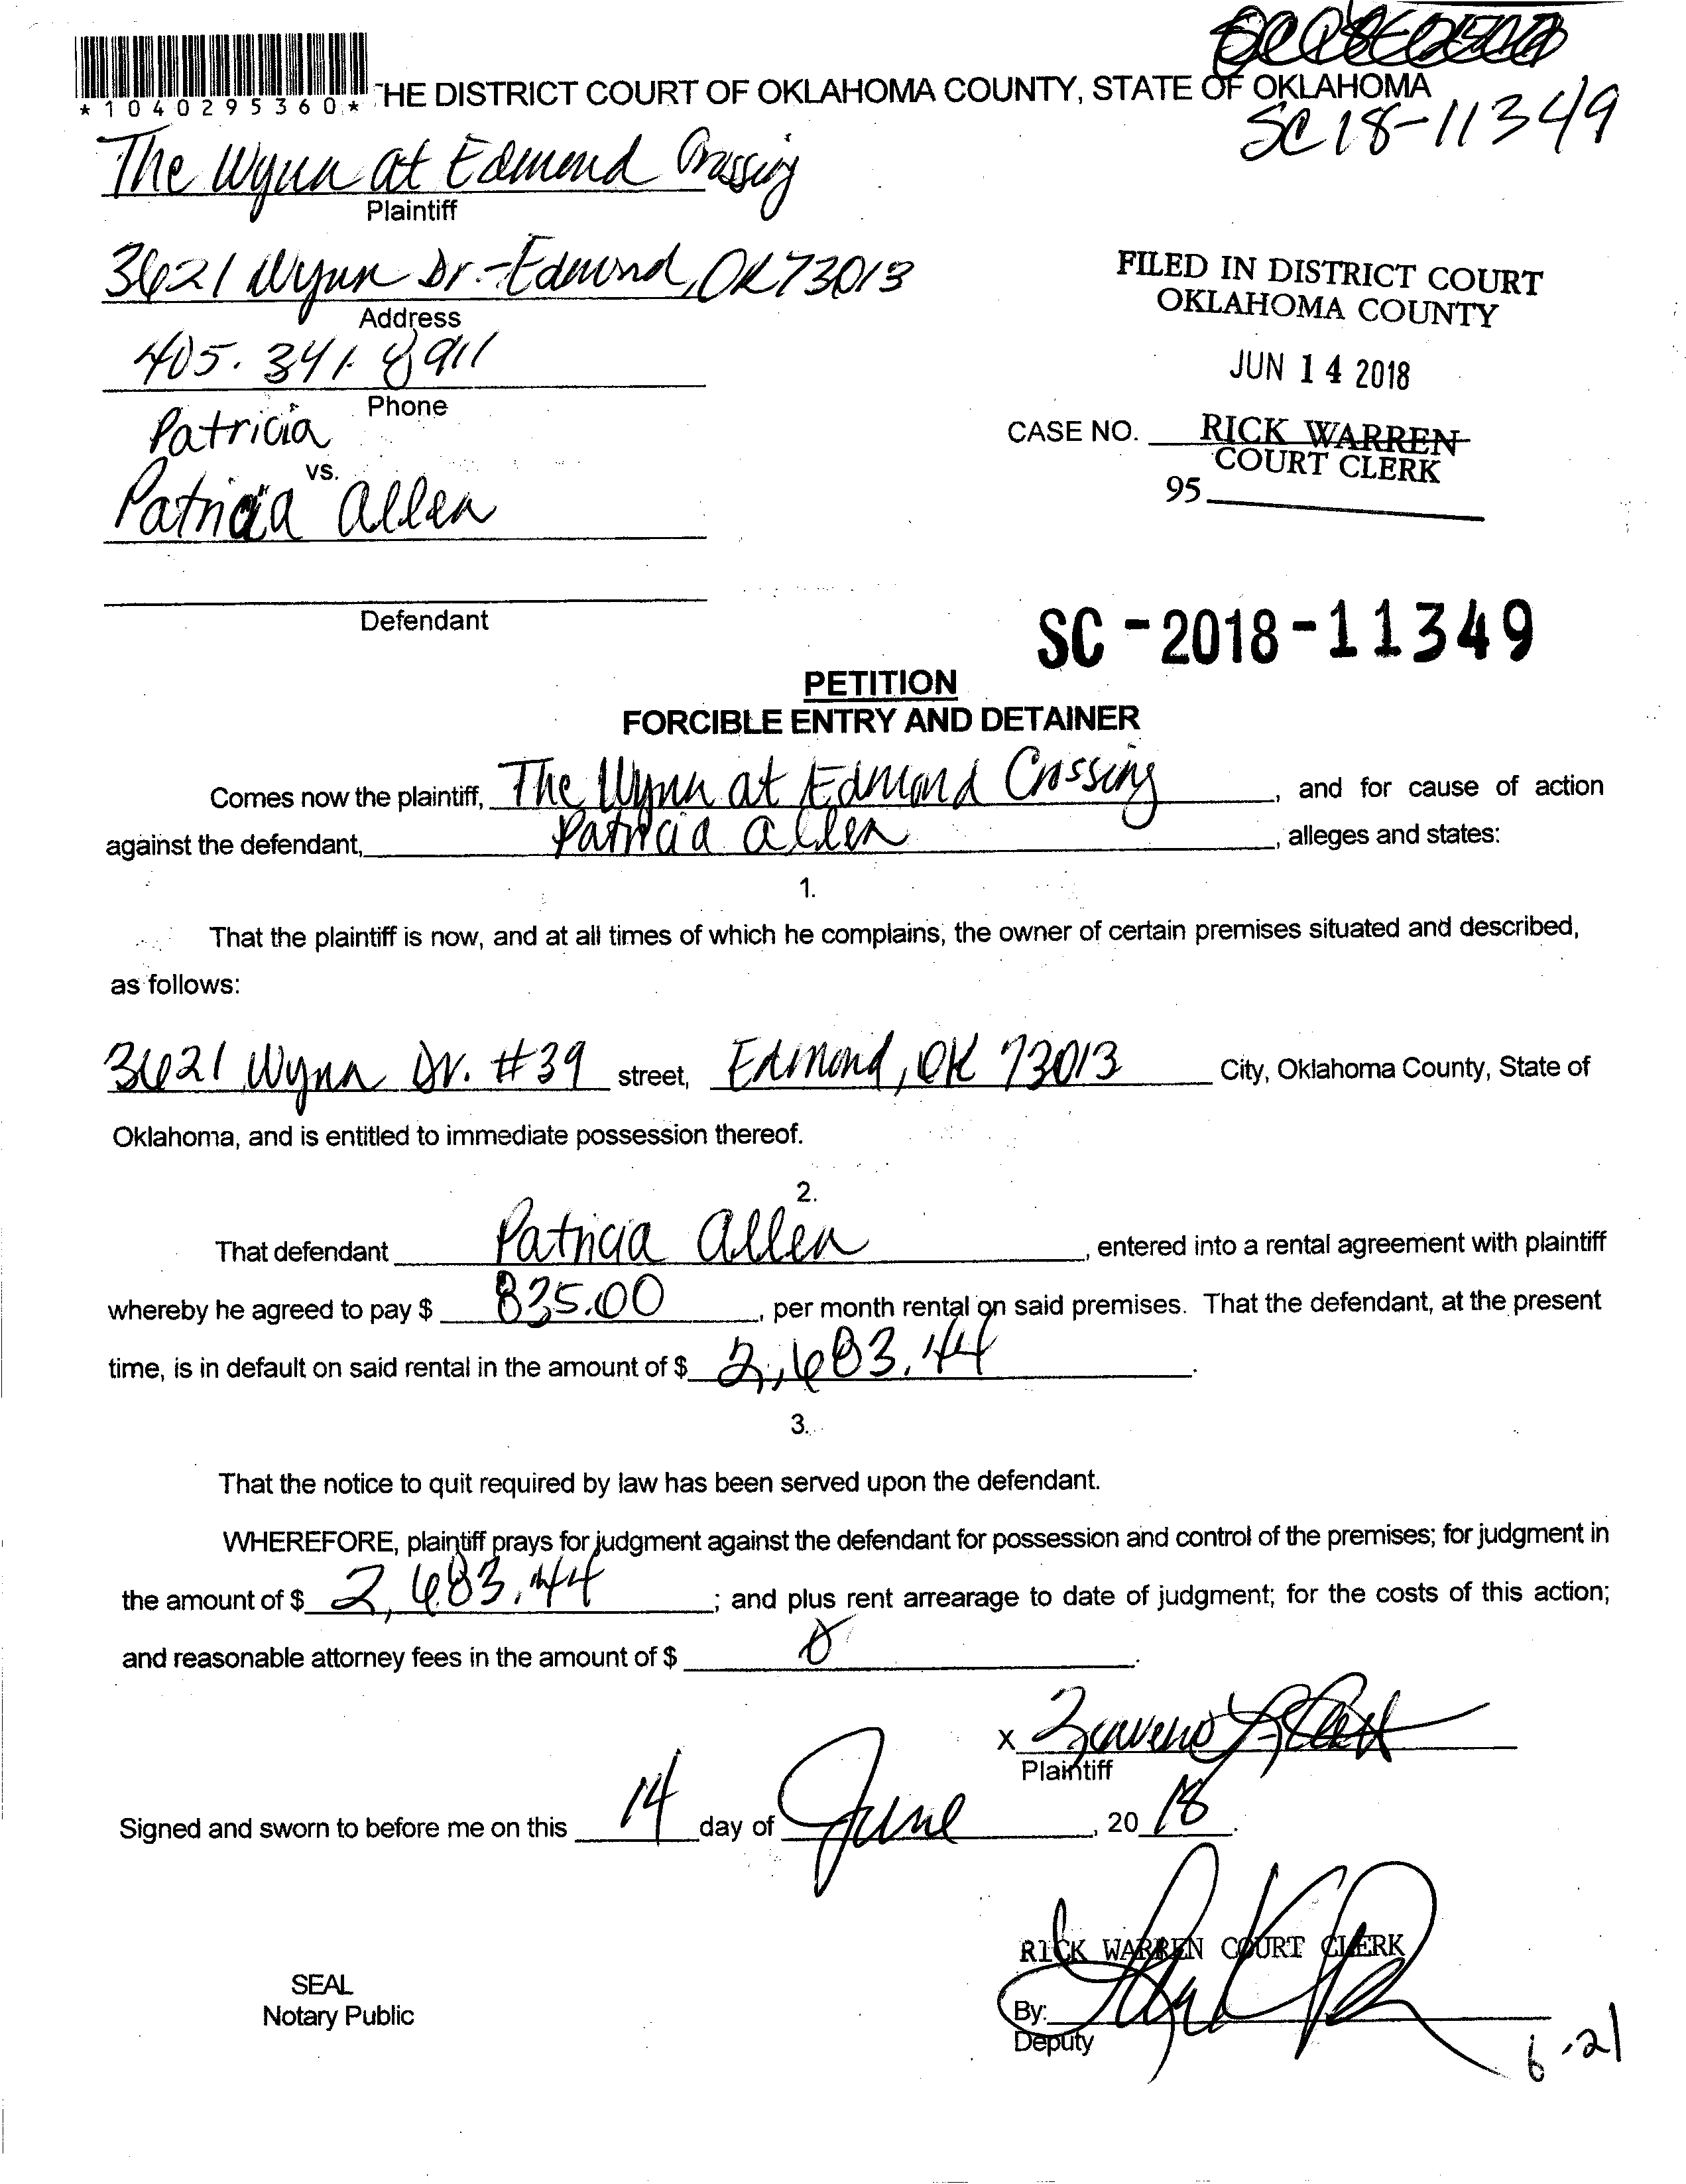 *1040295360*
THE DISTRICT COURT OF OKLAHOMA COUNTY, STATE OF OKLAHOMA
SC18-11349
The Wynn at Edmond Crossing
Plaintiff
3621 Wynn Dr. - Edmond, OK 73013
Address
405.341.8911
Phone
FILED IN DISTRICT COURT
OKLAHOMA COUNTY
JUN 14 2018
CASE NO. RICK WARREN
COURT CLERK
95
Patricia
vs.
Patricia Allen
Defendant
SC-2018-11349
PETITION
FORCIBLE ENTRY AND DETAINER
Comes now the plaintiff, The Wynn at Edmond Crossing, and for cause of action
against the defendant, Patricia Allen, alleges and states:
1.
That the plaintiff is now, and at all times of which he complains, the owner of certain premises situated and described,
as follows:
3621 Wynn Dr. #39 street, Edmond, OK 73013 City, Oklahoma County, State of
Oklahoma, and is entitled to immediate possession thereof.
2.
That defendant Patricia Allen, entered into a rental agreement with plaintiff
whereby he agreed to pay $ 835.00, per month rental on said premises. That the defendant, at the present
time, is in default on said rental in the amount of $ 2,683.44.
3.
That the notice to quit required by law has been served upon the defendant.
WHEREFORE, plaintiff prays for judgment against the defendant for possession and control of the premises; for judgment in
the amount of $ 2,683.44; and plus rent arrearage to date of judgment; for the costs of this action;
and reasonable attorney fees in the amount of $ 0.
X
Plaintiff
Signed and sworn to before me on this 14 day of June, 2018.
RICK WARREN COURT CLERK
SEAL
Notary Public
By:
Deputy
6-21